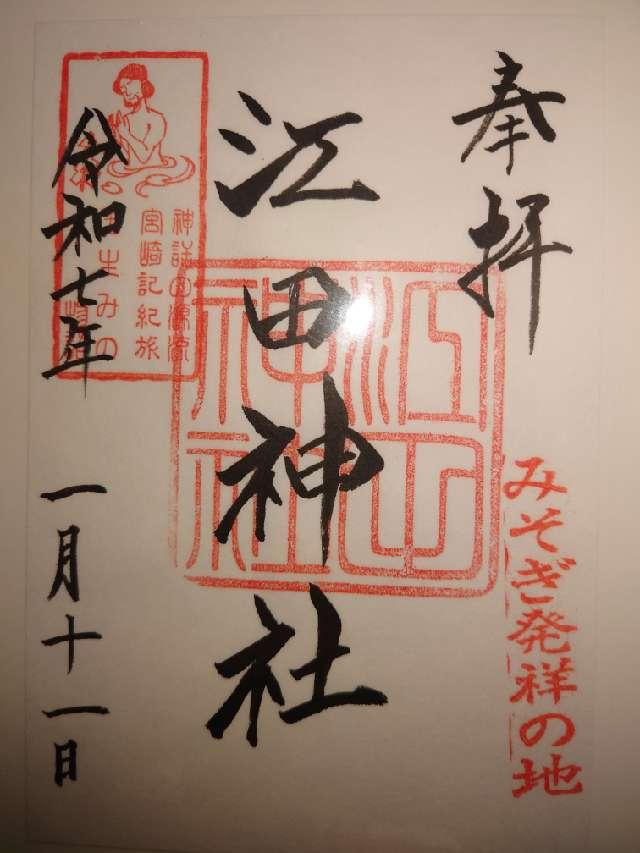 奉拝
みそぎ発祥の地
江田神社
江田神社
神話の源流
宮崎記紀旅
令和七年 一月十一日